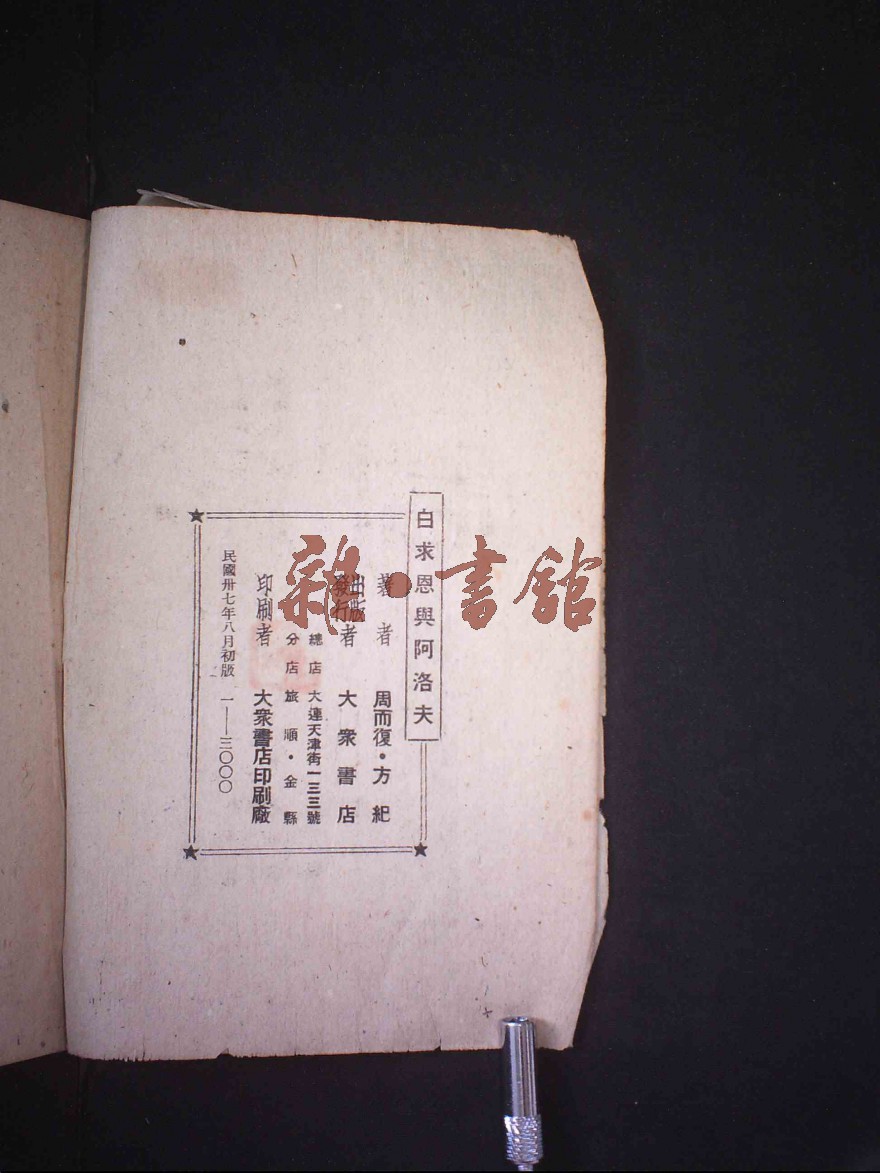 白求恩與阿洛夫
著者 周而復・方紀
出版發行者 大衆書店
總店 大連天津街一三三號
分店 旅順・金縣
印刷者 大衆書店印刷廠
民國卅七年八月初版 一——三〇〇〇
雜・書館